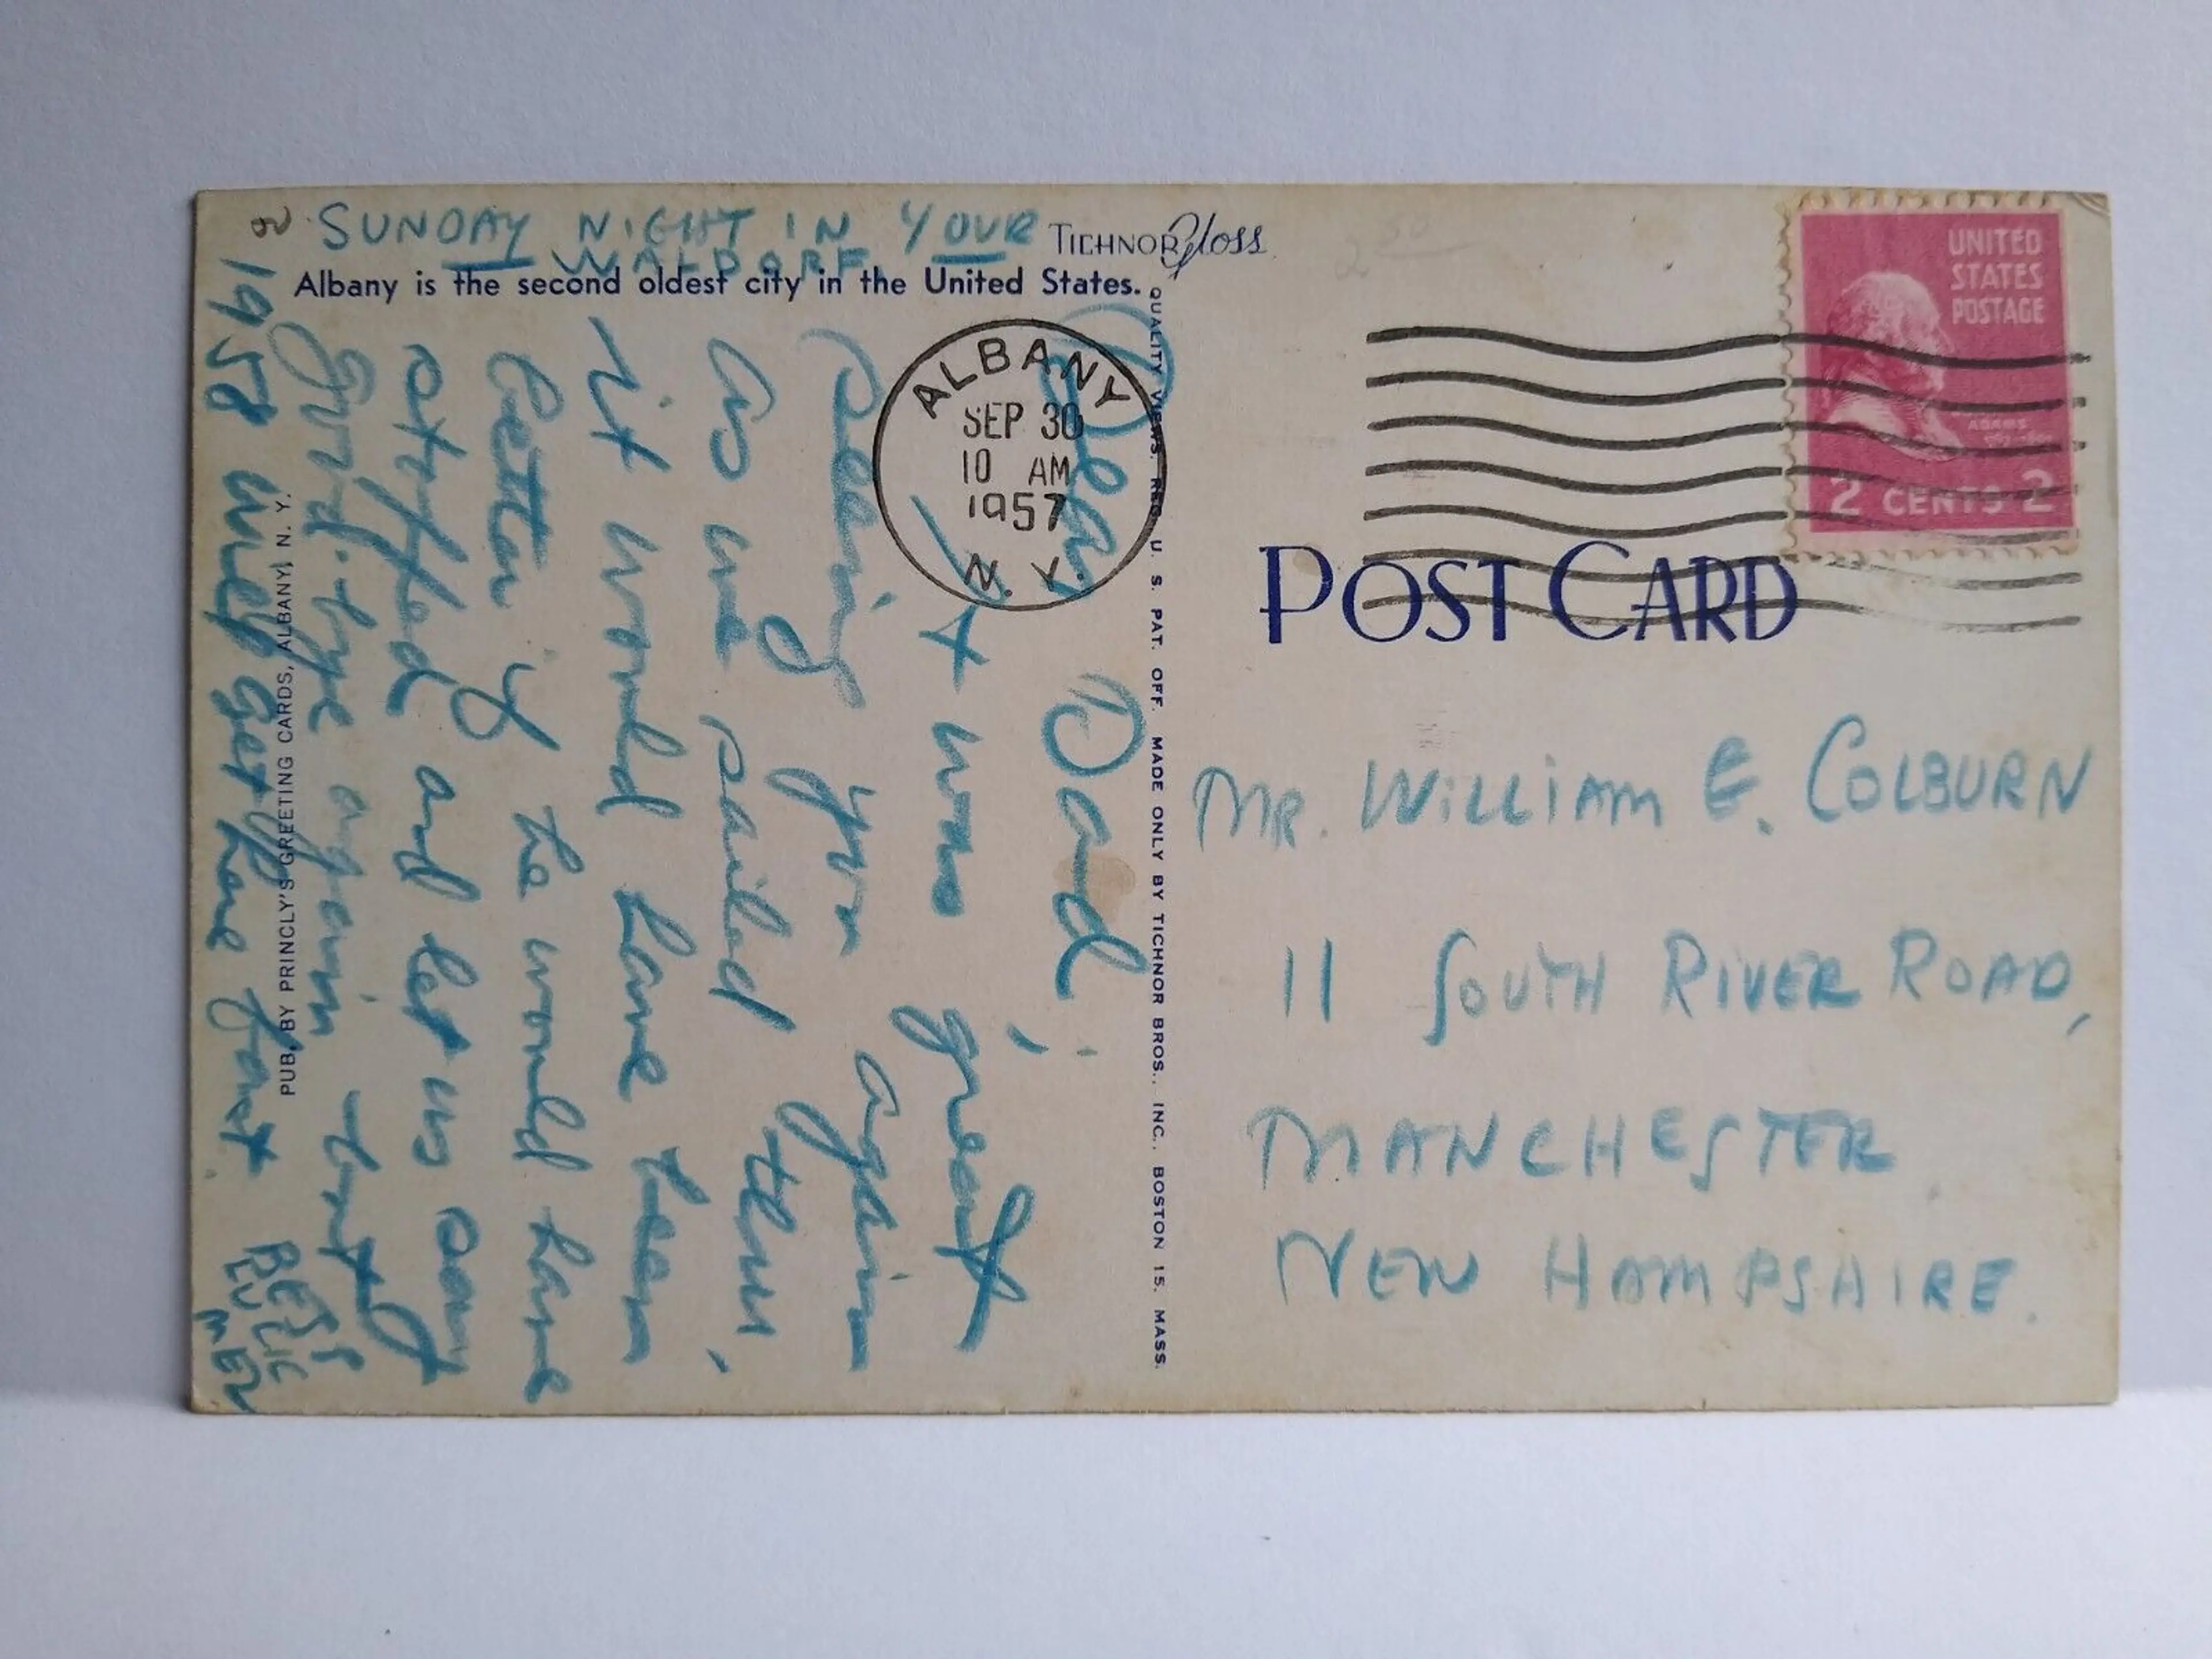 SUNDAY NIGHT IN YOUR
WALDORF
TICHNOR Gloss
Albany is the second oldest city in the United States.
Dear Dad,
It was great
seeing you again
As we sailed thru,
it would have been
better if he would have
stopped and let us say
good-bye again
1958 will get here fast.
BESS
EVLIE
MER
PUB. BY PRINCLY'S GREETING CARDS, ALBANY, N. Y.
ALBANY
SEP 30
10 AM
1957
N. Y.
QUALITY VIEWS, REG. U. S. PAT. OFF. MADE ONLY BY TICHNOR BROS., INC., BOSTON 15, MASS.
UNITED
STATES
POSTAGE
ADAMS
2 CENTS 2
POST CARD
MR. WILLIAM E. COLBURN
11 SOUTH RIVER ROAD,
MANCHESTER
NEW HAMPSHIRE.